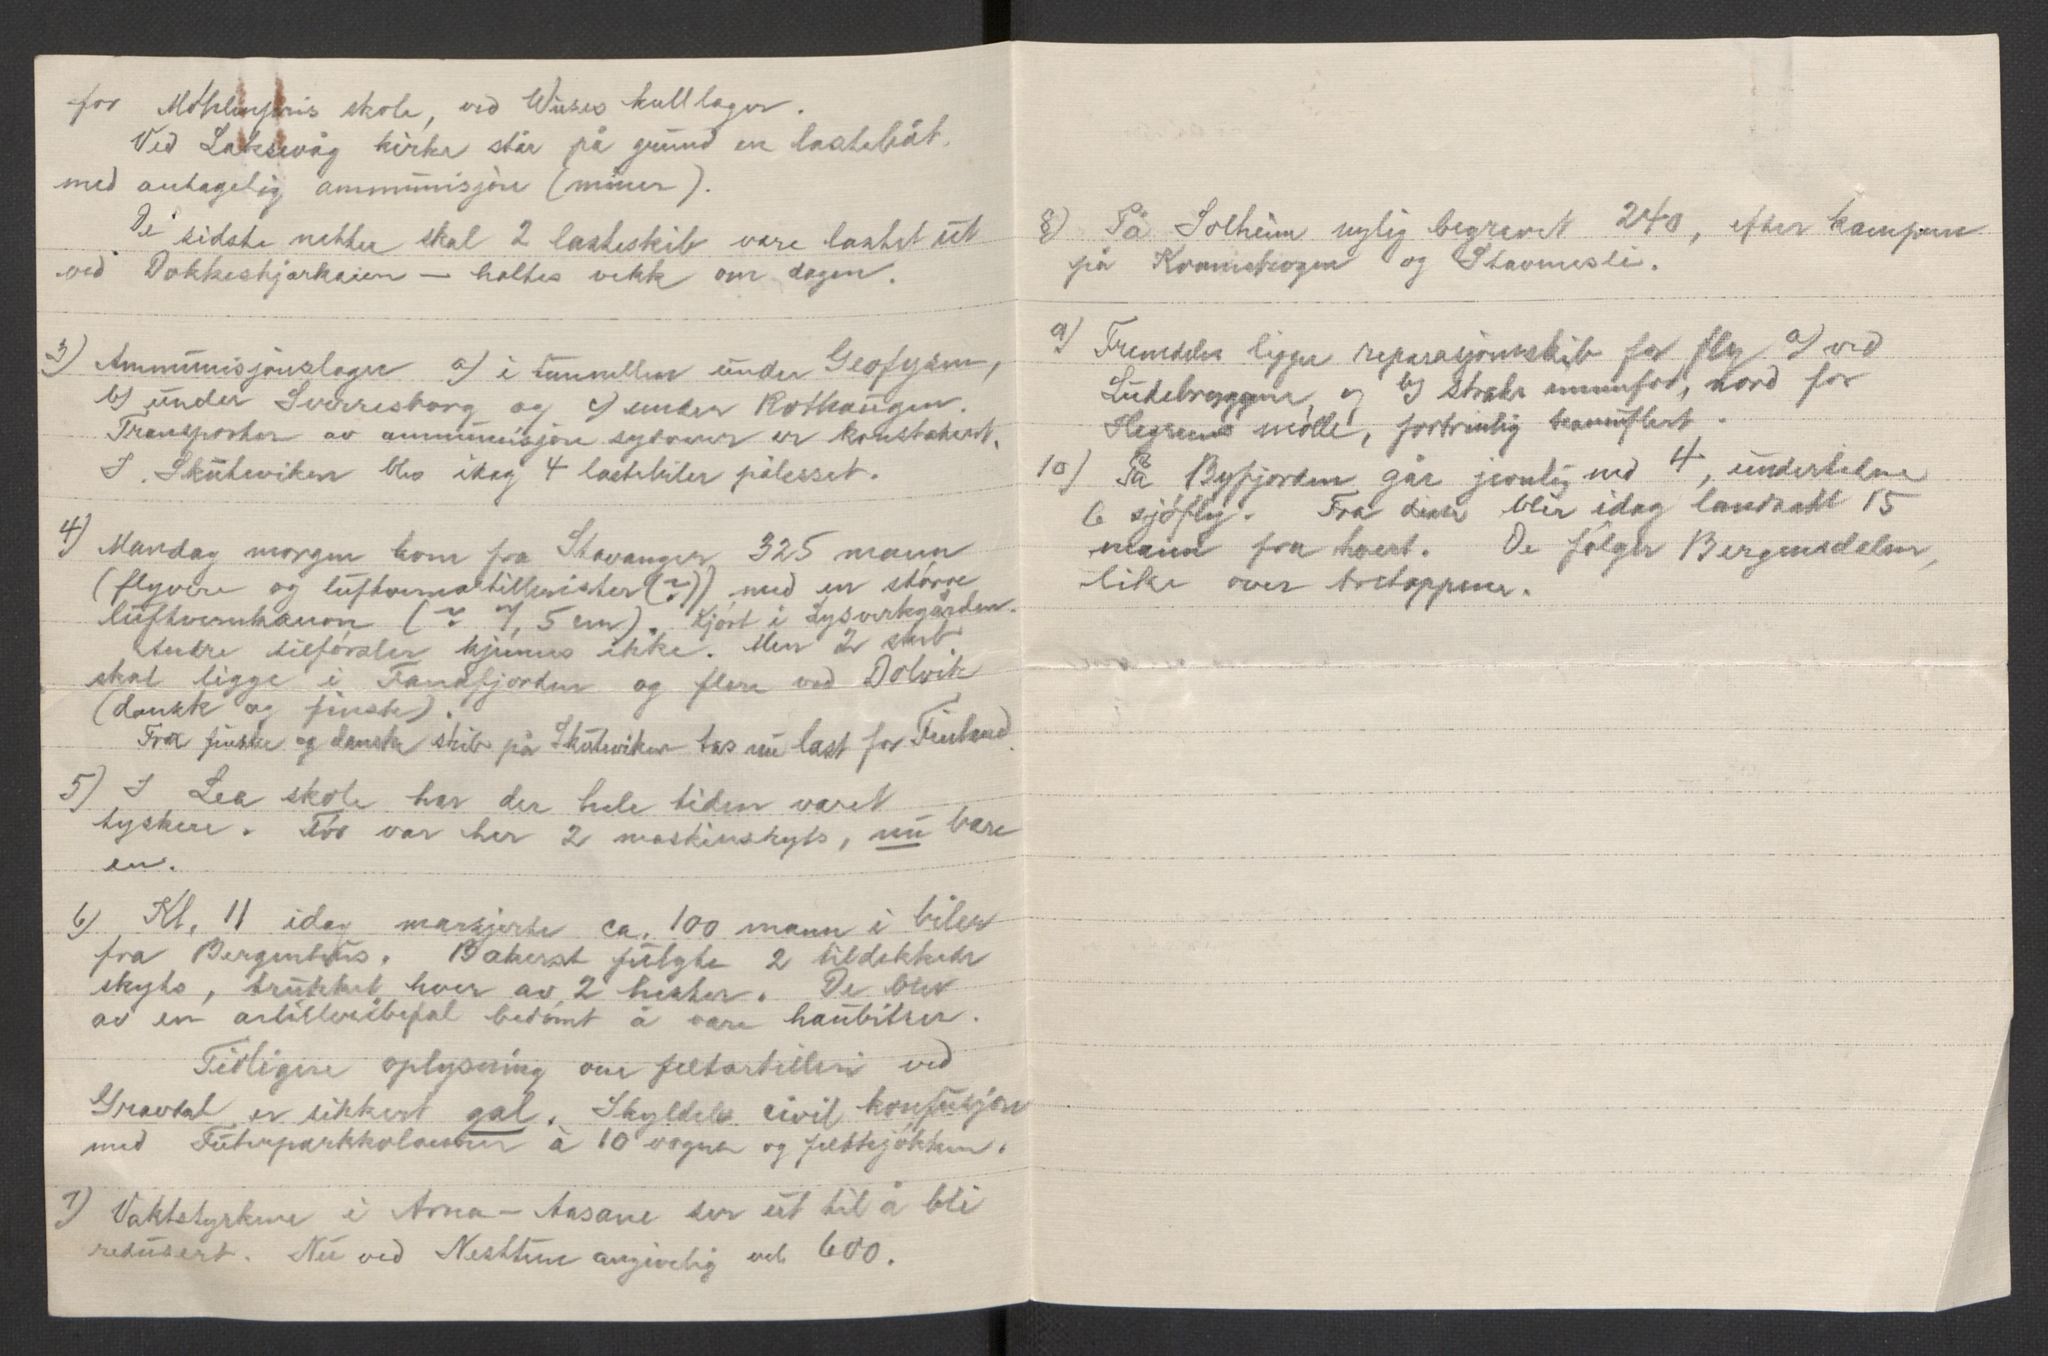 for Möhlenpris skole, ved Wüses kullager.
Ved Laksevåg kirke står på grund en lastebåt
med antagelig ammunisjon (miner).
De sidste netter skal 2 lasteskib være lastet ut
ved Dokkeskjærkaien – holtes vekk om dagen.
3) Ammunisjonslager a) i tunnellen under Geofysen,
b) under Sverresborg og c) under Rothaugen.
Transporter av ammunisjon sydover er konstatert.
I Skuteviken blev idag 4 lastebiler pålesset.
4) Mandag morgen kom fra Stavanger 325 mann
(flyvere og luftvernartillerister (?)) med en større
luftvernkanon (? 7,5 cm). Kjørt i Lysverkgården.
Andre tilførsler kjennes ikke. Men 2 skib
skal ligge i Fanafjorden og flere ved Dolvik
(dansk og finske).
Fra finske og danske skib på Skuteviken tas nu last for Finland.
5) I Lea skole har der hele tiden været
tyskere. Før var her 2 maskinskyts, nu bare
en.
6) Kl. 11 idag marsjerte ca. 100 mann i biler
fra Bergenhus. Bakerst fulgte 2 tildekkede
skyts, trukket hver av 2 hester. De blev
av en artilleribefal bedømt å være haubitser.
Tidligere oplysning om feltartilleri ved
Gravdal er sikkert gal. Skyldes civil konfusjon
med Futerparkkolonner à 10 vogner og feltkjøkken.
7) Vaktstyrkene i Arna – Aasane ser ut til å bli
redusert. Nu ved Nesttun angivelig vel 600.
8) På Solheim nylig begravet 240, efter kampene
på Kvamskogen og Stavnesli.
9) Fremdeles ligger reparasjonsskib for fly a) ved
Ludebryggene, og b) straks innenfor, nord for
Hegrenes mølle, fortrinlig kamuflert.
10) På Byfjorden går jevnlig ned 4, undertiden
6 sjøfly. Fra disse blir idag landsatt 15
mann fra hvert. De følger Bergensdalen,
like over tretoppene.